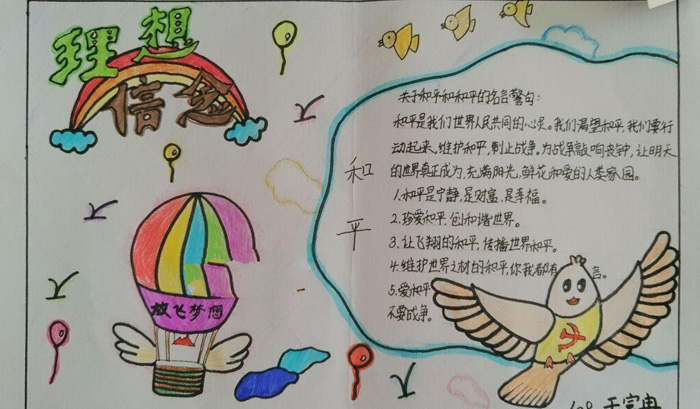 理想
信念
放飞梦想
和平
关于和平和和平的名言警句：
和平是我们世界人民共同的心灵。我们渴望和平，我们要行
动起来，维护和平，制止战争。为战争敲响丧钟，让明天
的世界真正成为，充满阳光，鲜花和爱的人类家园。
1.和平是宁静，是财富，是幸福。
2.珍爱和平，创和谐世界。
3.让飞翔的和平，传播世界和平。
4.维护世界之材的和平，你我都有
言。
5.爱和平
不要战争。